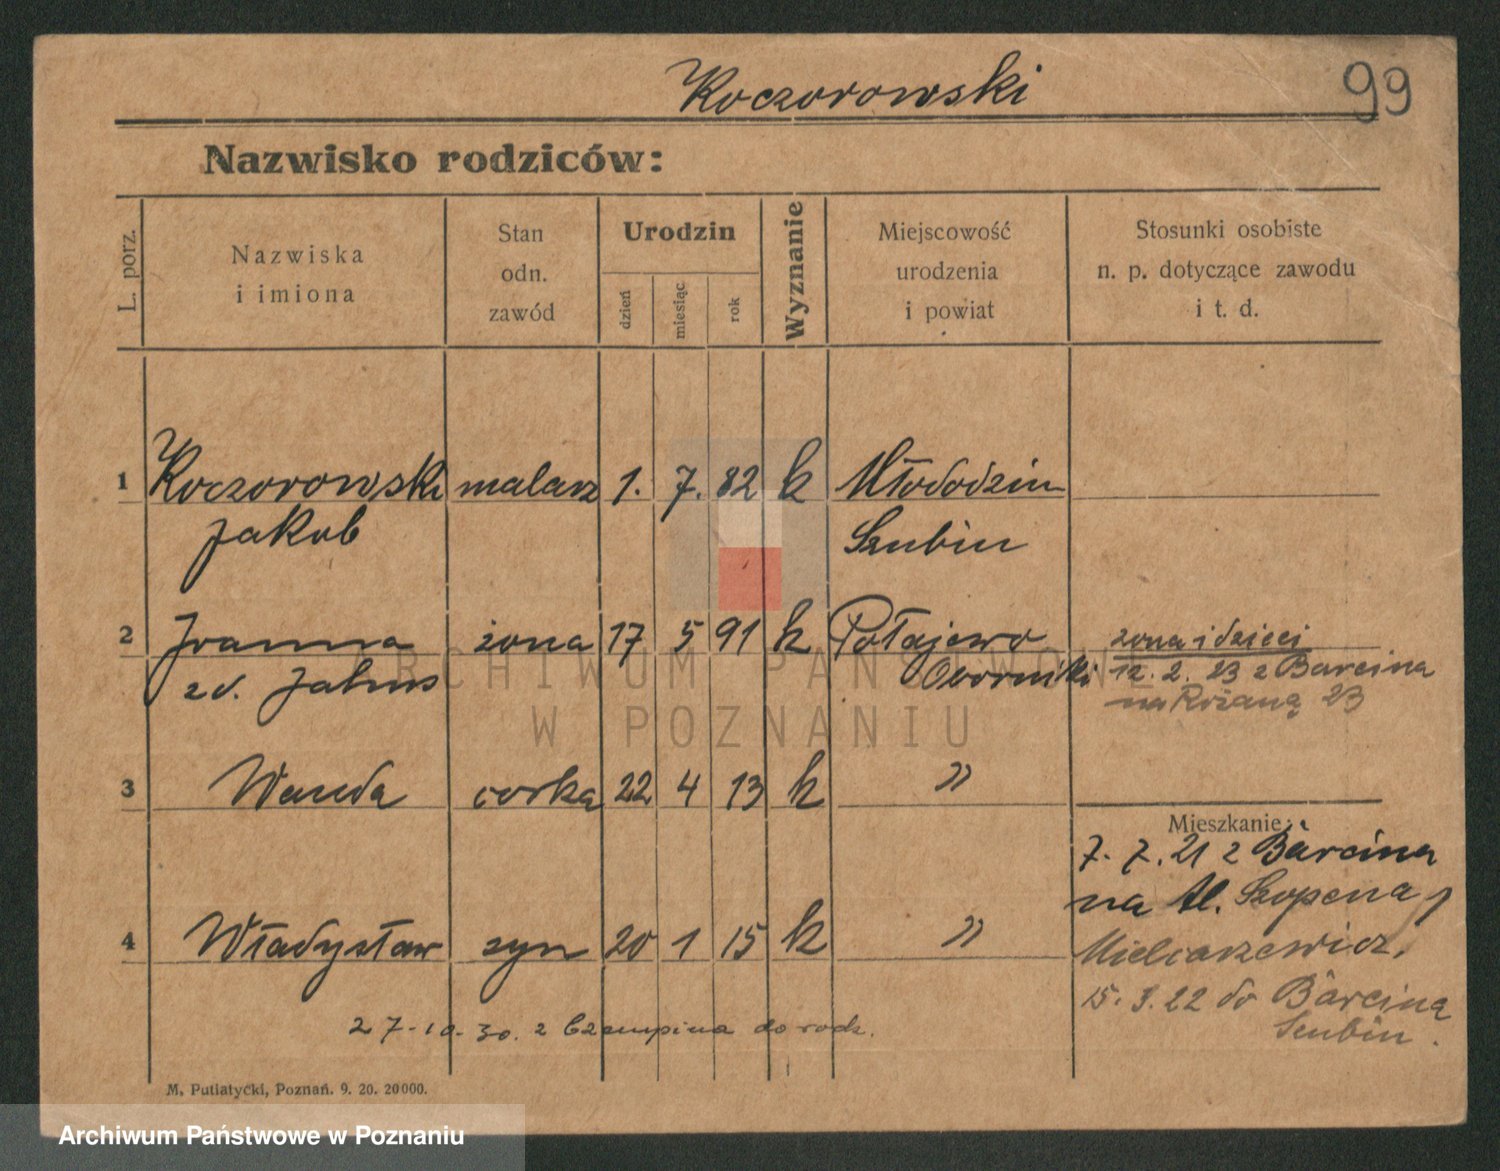 Koczorowski
99
Nazwisko rodziców:
L. porz.
Nazwiska
i imiona
Stan
odn.
zawód
Urodzin
dzień
miesiąc
rok
Wyznanie
Miejscowość
urodzenia
i powiat
Stosunki osobiste
n. p. dotyczące zawodu
i t. d.
1 Koczorowski malarz 1. 7. 82 k Młodocin
Jakob Szubin
2 Joanna żona 17 5 91 k Połajewo
zd. Oborniki
żona i dzieci
12. 2. 23 z Barcina
na Różaną 23
3 Wanda corka 22 4 13 k "
Mieszkanie:
7. 7. 21 z Barcina
na Al. Szopena
4 Władysław syn 20 1 15 k "
Mielcarzewicz.
15. 3. 22 do Barcina
Szubin.
27-10.30. z Czempina do rodz.
M. Putiatycki, Poznań. 9. 20. 20000.
ARCHIWUM PAŃSTWOWE
W POZNANIU
Archiwum Państwowe w Poznaniu